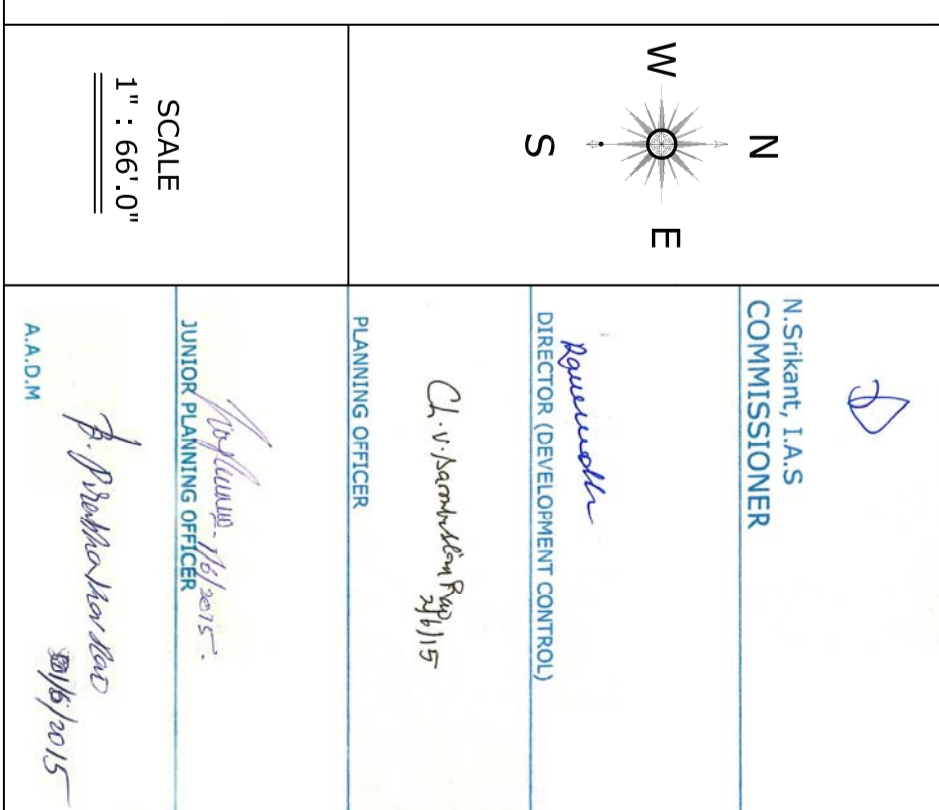 N
W
E
S
SCALE
1" : 66'.0"
N.Srikant, I.A.S
COMMISSIONER
DIRECTOR (DEVELOPMENT CONTROL)
Ch. V. Rao
2/6/15
PLANNING OFFICER
1/6/2015.
JUNIOR PLANNING OFFICER
B. Prabhakar Rao
/6/2015
A.A.D.M